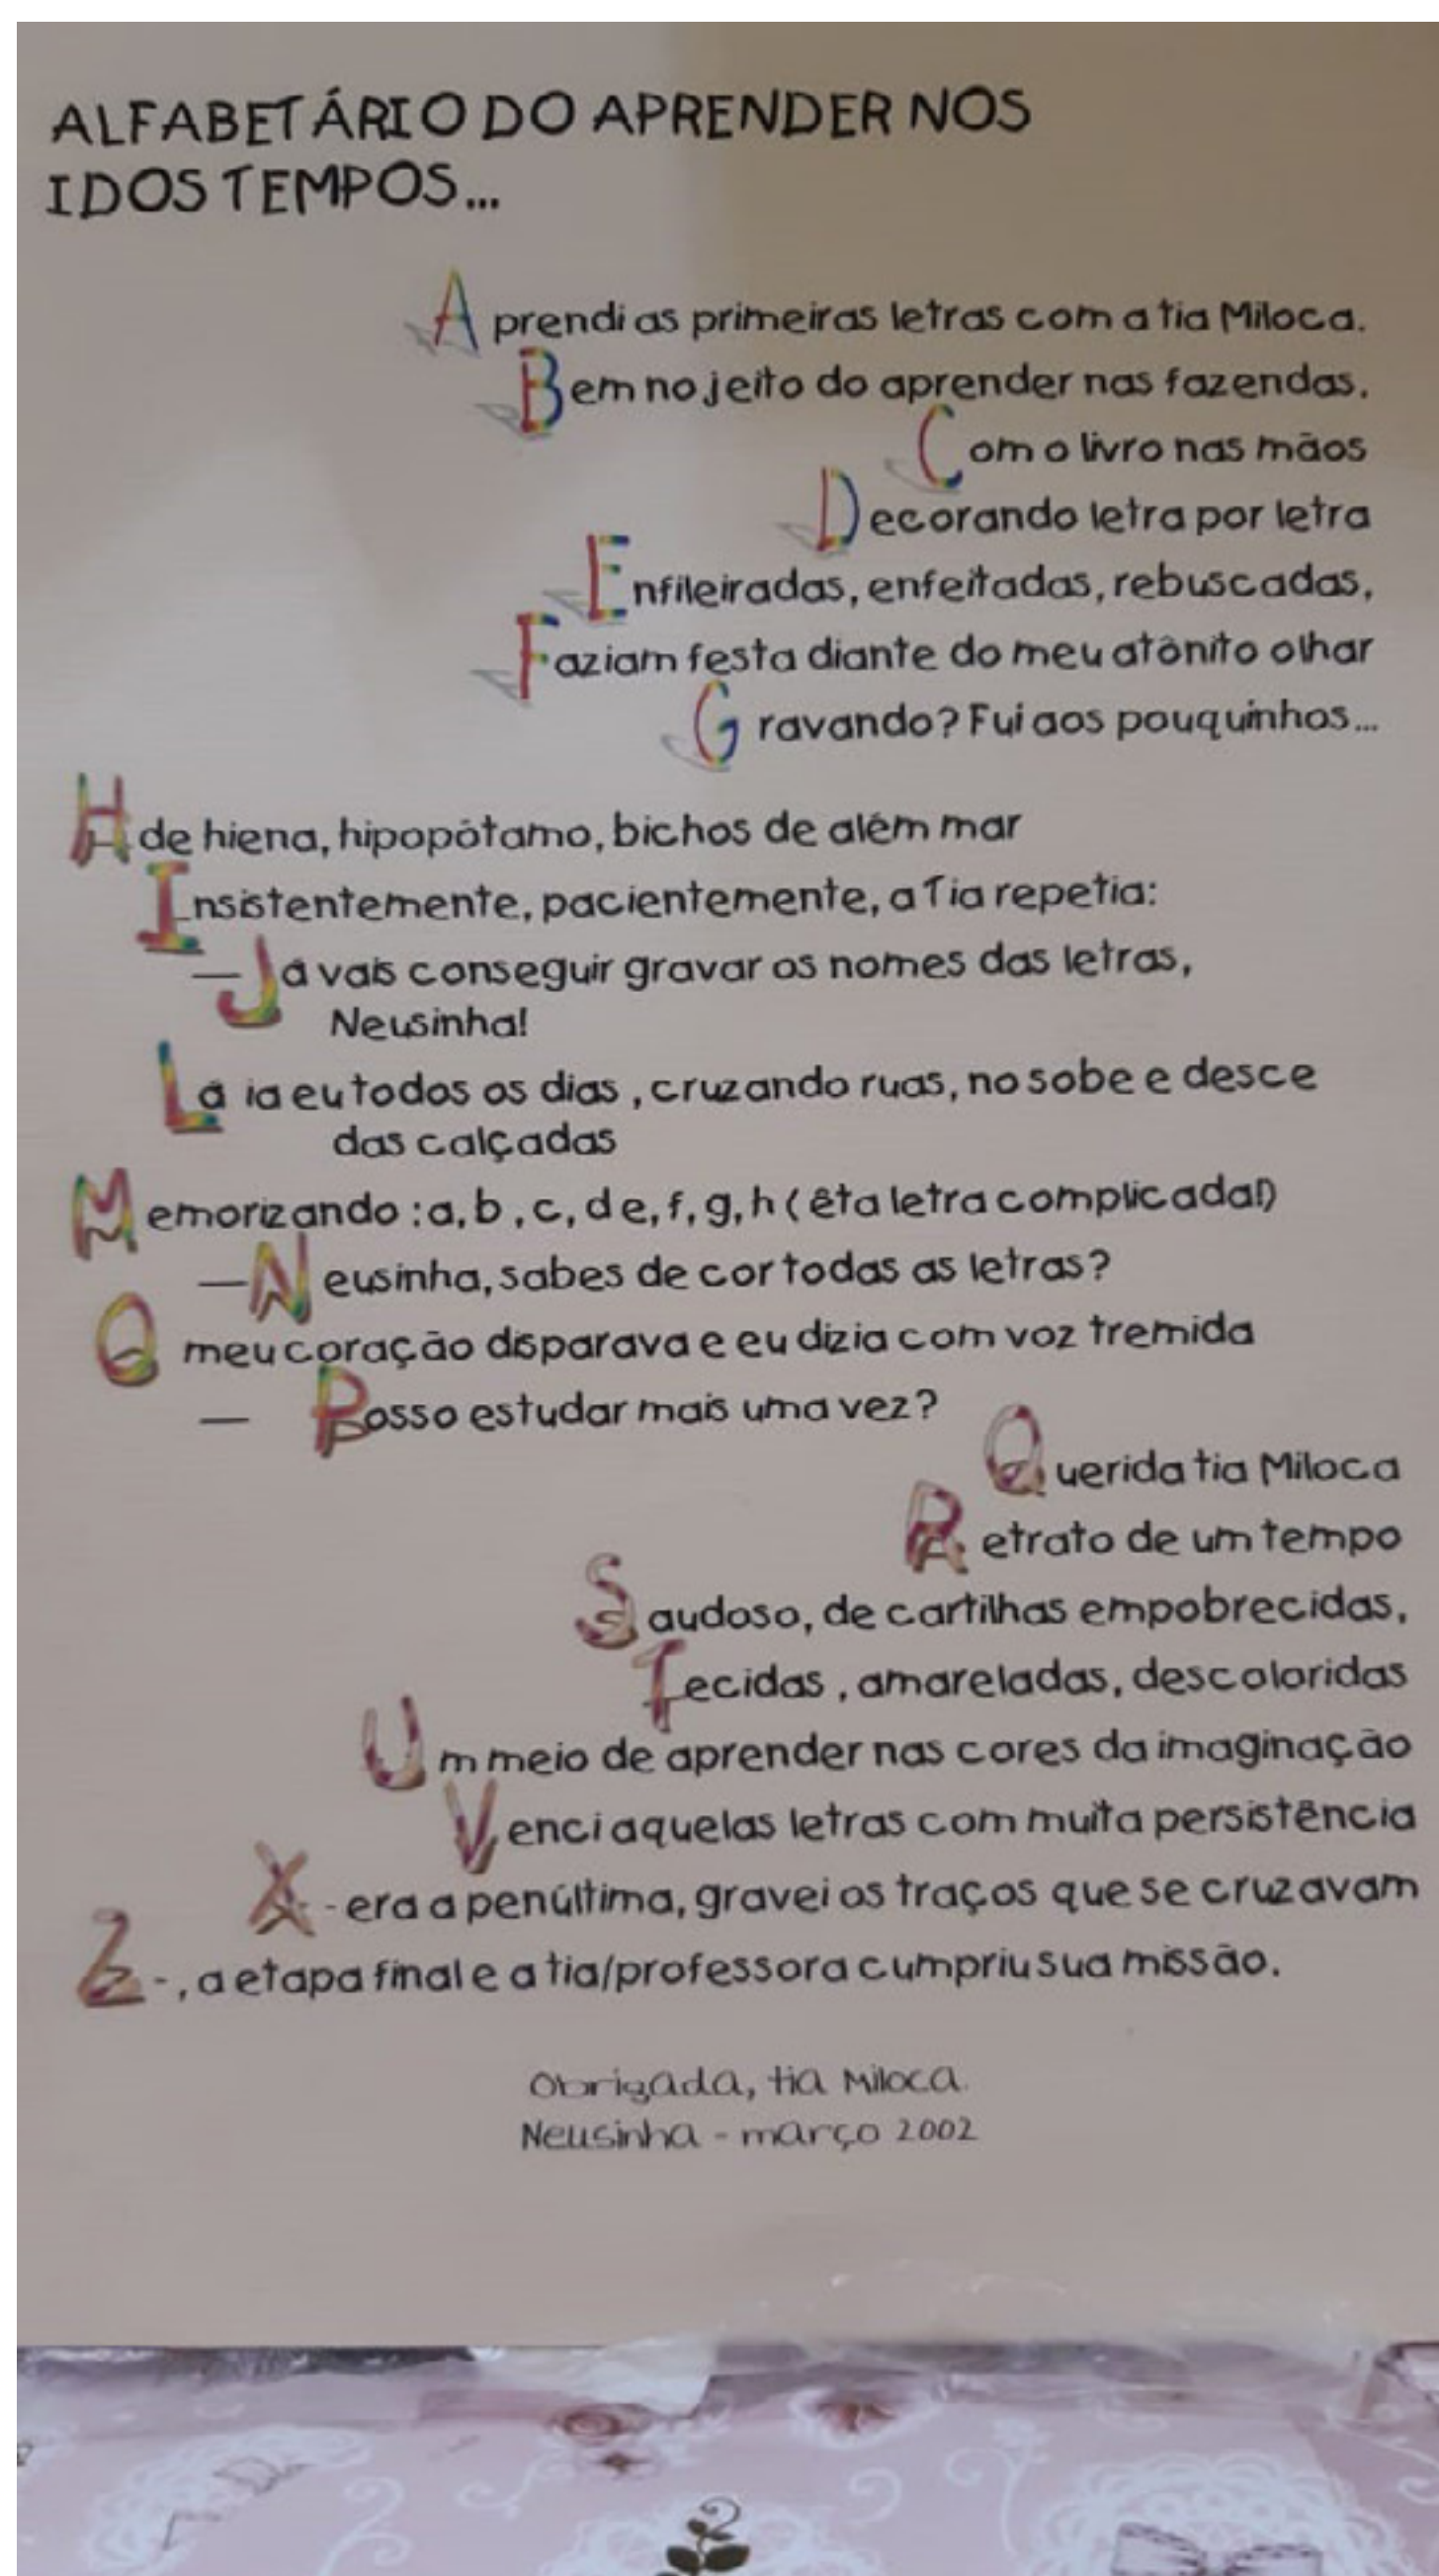 ALFABETÁRIO DO APRENDER NOS
IDOS TEMPOS...
Aprendi as primeiras letras com a tia Miloca.
Bem no jeito do aprender nas fazendas.
Com o livro nas mãos
Decorando letra por letra
Enfileiradas, enfeitadas, rebuscadas,
Faziam festa diante do meu atônito olhar
Gravando? Fui aos pouquinhos...
H de hiena, hipopótamo, bichos de além mar
Insistentemente, pacientemente, a Tia repetia:
— Já vais conseguir gravar os nomes das letras,
Neusinha!
Lá ia eu todos os dias, cruzando ruas, no sobe e desce
das calçadas
Memorizando: a, b, c, d e, f, g, h (êta letra complicada!)
— Neusinha, sabes de cor todas as letras?
O meu coração disparava e eu dizia com voz tremida
— Posso estudar mais uma vez?
Querida tia Miloca
Retrato de um tempo
Saudoso, de cartilhas empobrecidas,
Tecidas, amareladas, descoloridas
Um meio de aprender nas cores da imaginação
Venci aquelas letras com muita persistência
X - era a penúltima, gravei os traços que se cruzavam
Z -, a etapa final e a tia/professora cumpriu sua missão.
Obrigada, tia Miloca.
Neusinha - março 2002